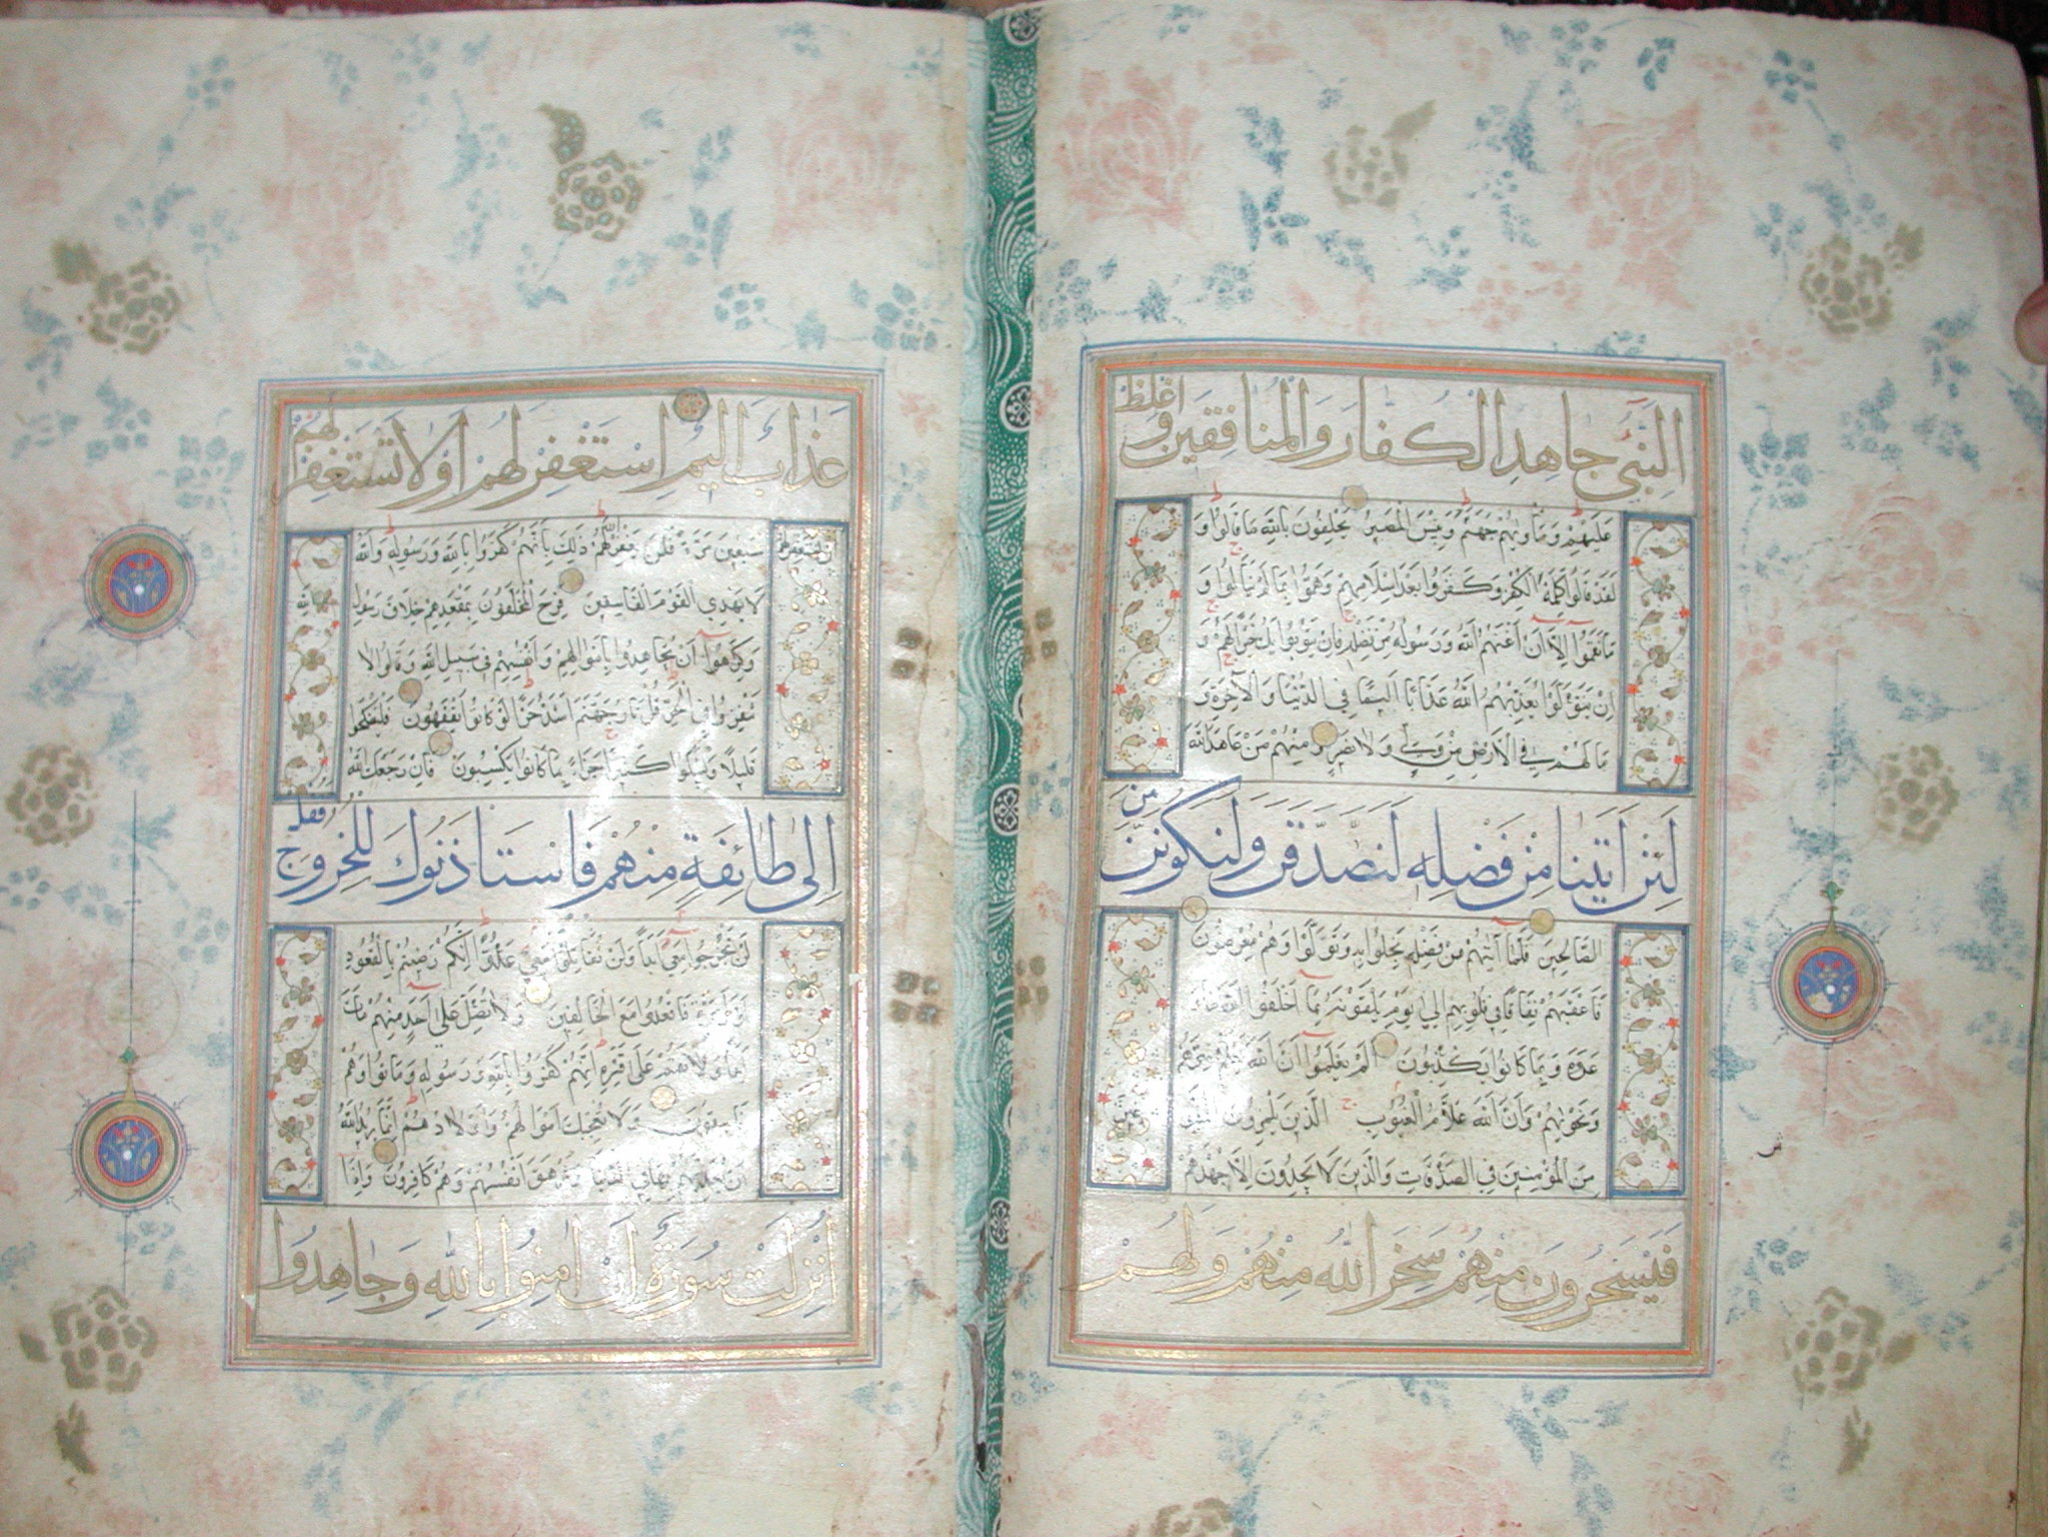 النبي جاهد الكفار والمنافقين واغلظ
عليهم وماويهم جهنم وبئس المصير يحلفون بالله ما قالوا و
لقد قالوا كلمة الكفر وكفروا بعد اسلامهم وهموا بما لم ينالوا و
ما نقموا الا ان اغنيهم الله ورسوله من فضله فان يتوبوا يك خيرا لهم و
ان يتولوا يعذبهم الله عذابا اليما في الدنيا والآخرة و
ما لهم في الارض من ولي ولا نصير ومنهم من عاهد الله
لئن اتينا من فضله لنصدقن ولنكونن من
الصالحين فلما آتيهم من فضله بخلوا به وتولوا وهم معرضون
فاعقبهم نفاقا في قلوبهم الي يوم يلقونه بما اخلفوا الله ما
عدوه وبما كانوا يكذبون الم يعلموا ان الله يعلم سرهم
ونجويهم وان الله علام الغيوب الذين يلمزون
من المؤمنين في الصدقات والذين لا يجدون الا جهدهم
فيسخرون منهم سخر الله منهم ولهم
عين
ش
عذاب اليم استغفر لهم اولا تستغفر لهم
ان تستغفر لهم سبعين مرة فلن يغفر الله لهم ذلك بانهم كفروا بالله ورسوله والله
لا يهدي القوم الفاسقين فرح المخلفون بمقعدهم خلاف رسول الله
وكرهوا ان يجاهدوا باموالهم وانفسهم في سبيل الله وقالوا لا
تنفروا في الحر قل نار جهنم اشد حرا لو كانوا يفقهون فليضحكوا
قليلا وليبكوا كثيرا جزاء بما كانوا يكسبون فان رجعك الله
الى طائفة منهم فاستاذنوك للخروج فقل
لن تخرجوا معي ابدا ولن تقاتلوا معي عدوا انكم رضيتم بالقعود
اول مرة فاقعدوا مع الخالفين ولا تصل علي احد منهم مات
ابدا ولا تقم على قبره انهم كفروا بالله ورسوله وماتوا وهم
فاسقون ولا تعجبك اموالهم واولادهم انما يريد الله
ان يعذبهم بها في الدنيا وتزهق انفسهم وهم كافرون واذا
انزلت سورة ان امنوا بالله وجاهدوا